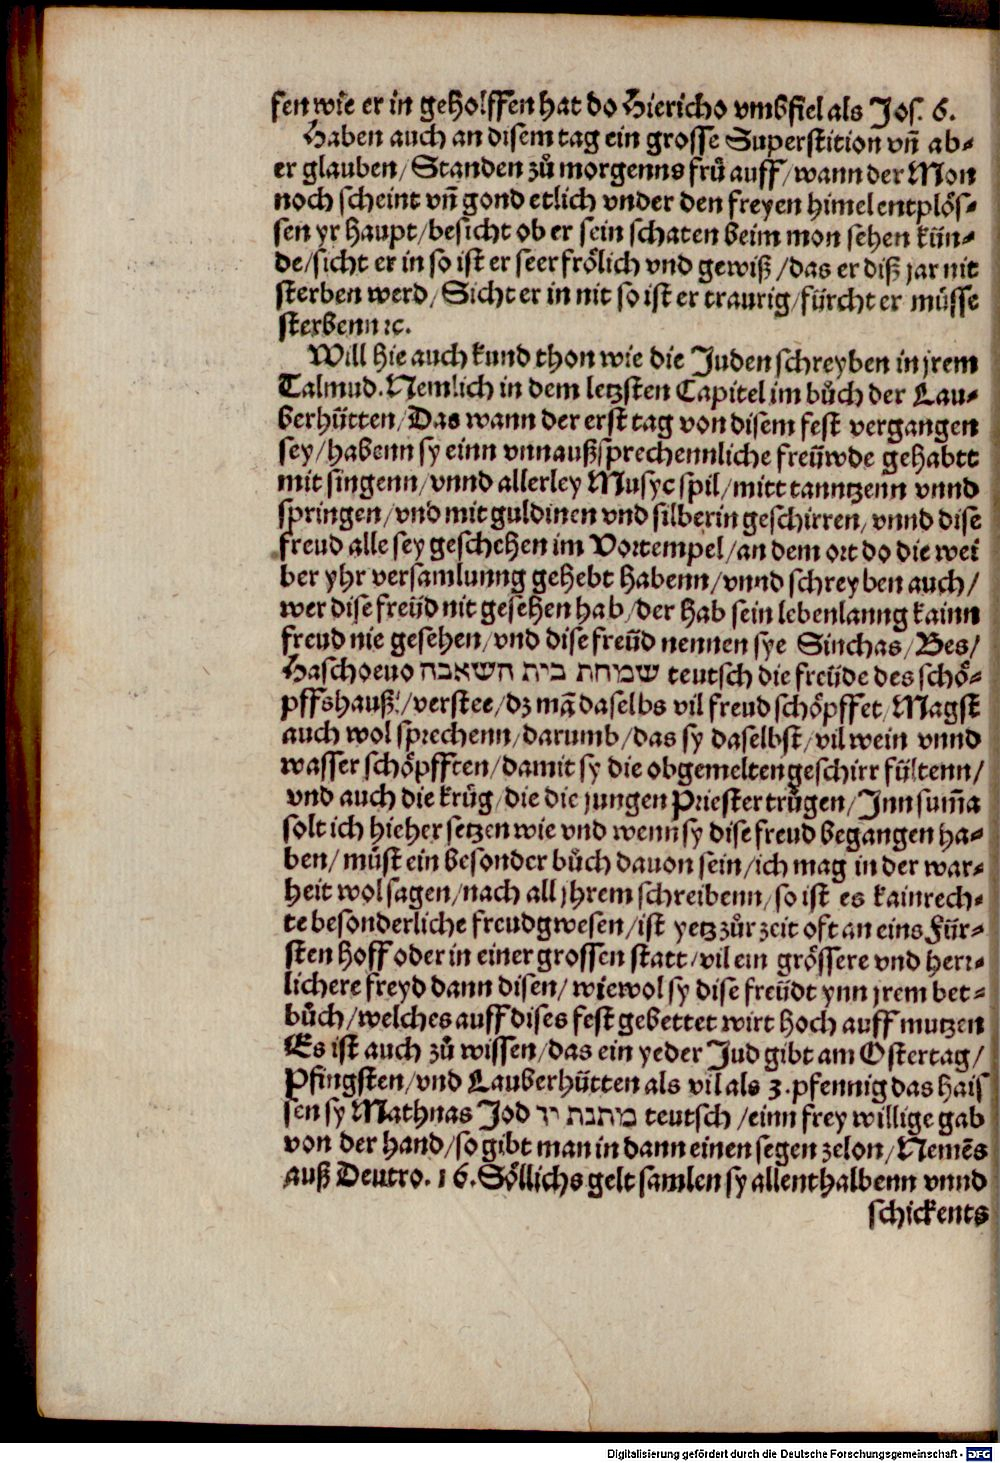 sen wie er in geholffen hat do Hiericho vmbfiel als Jos. 6.
Haben auch an disem tag ein grosse Superstition vn̄ ab-
er glauben/Standen zů morgenns frů auff/wann der Mon
noch scheint vn̄ gond etlich vnder den freyen himel entplös-
sen yr haupt/besicht ob er sein schaten beim mon sehen kün-
de/sicht er in so ist er seer frölich vnd gewiß/das er diß jar nit
sterben werd/Sicht er in nit so ist er traurig/fürcht er müsse
sterbenn ꝛc.
Will hie auch kund thon wie die Juden schreyben in jrem
Talmud. Nemlich in dem letzsten Capitel im bůch der Lau-
berhütten/Das wann der erst tag von disem fest vergangen
sey/habenn sy einn vnnaußsprechennliche freüwde gehabtt
mit singenn/vnnd allerley Musyc spil/mitt tanntzenn vnnd
springen/vnd mit guldinen vnd silberin geschirren/vnnd dise
freud alle sey geschehen im Vortempel/an dem ort do die wei
ber yhr versamlunng gehebt habenn/vnnd schreyben auch/
wer dise freüd nit gesehen hab/der hab sein lebenlanng kainn
freud nie gesehen/vnd dise freüd nennen sye Sinchas/Bes/
Haschoeuo שמחת בית השאבה teutsch die freüde des schö-
pffshauß/verstee/dz mā daselbs vil freud schöpffet/Magst
auch wol sprechenn/darumb/das sy daselbst/vil wein vnnd
wasser schöpfften/damit sy die obgemelten geschirr fültenn/
vnd auch die krüg/die die jungen Priester trůgen/Inn sum̄a
solt ich hieher setzen wie vnd wenn sy dise freud begangen ha-
ben/müst ein besonder bůch dauon sein/ich mag in der war-
heit wol sagen/nach all jhrem schreibenn/so ist es kain rech-
te besonderliche freud gwesen/ist yetz zůr zeit oft an eins Für-
sten hoff oder in einer grossen statt/vil ein grössere vnd herr-
lichere freyd dann disen/wiewol sy dise freüdt ynn jrem bet-
bůch/welches auff dises fest gebettet wirt hoch auff mutzen
Es ist auch zů wissen/das ein yeder Jud gibt am Ostertag/
Pfingsten/vnd Lauberhütten als vil als 3. pfennig das hais
sen sy Mathnas Jod מתנת יד teutsch/einn frey willige gab
von der hand/so gibt man in dann einen segen zelon/Nemēs
auß Deutro. 16. Söllichs gelt samlen sy allenthalbenn vnnd
schickents
Digitalisierung gefördert durch die Deutsche Forschungsgemeinschaft - DFG